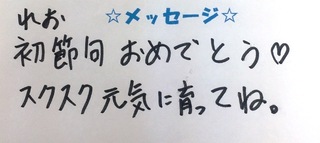 れお
☆メッセージ☆
初節句 おめでとう♡
スクスク元気に育ってね。